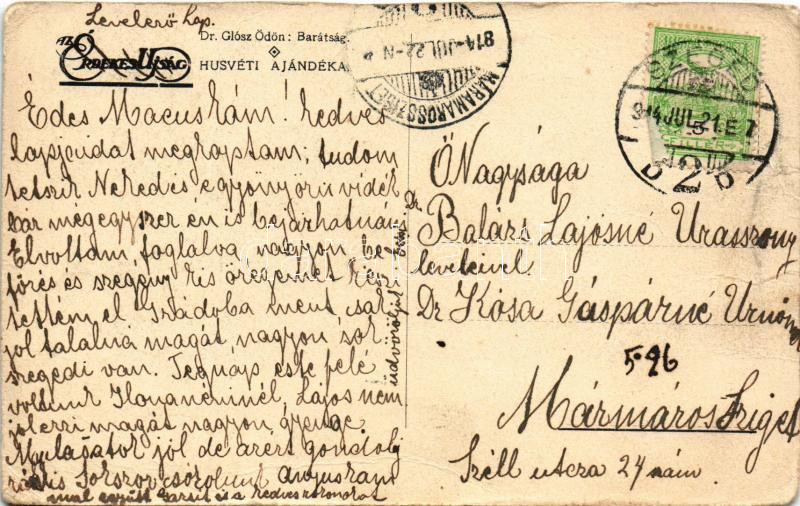 Levelező lap.
AZ ÉRDEKES UJSÁG
Dr. Glósz Ödön: Barátság.
HUSVÉTI AJÁNDÉKA
914 JUL 22 N
MÁRAMAROSSZIGET
SZEGED
914 JUL 21 E 7
2
Édes Macuskám! kedves
lapjaidat megkaptam, tudom
tetszik Neked és egyönyörü vidék
bár mégegyszer én is bejárhatnám
Elvoltam foglalva nagyon be
főzés és szegény kis öregemet kis
tettem el Grádoba ment, sal
jol talalna magát nagyon sok
szegedi van. Tegnap este felé
voltunk Ilonanéninél, Lajos nem
jol erzi magát nagyon gyenge.
Mulassatok jól de azért gondolj
rám is Sokszor csókolunk anyuskám
mal együtt Carsit és a kedves rokonokat
üdvözöljük
Őnagysága
Dr. Balázs Lajosné Urasszony
leveleivel
Dr Kósa Gáspárné Urnőnek
596
Mármáros Sziget
Széll utcza 24 szám.